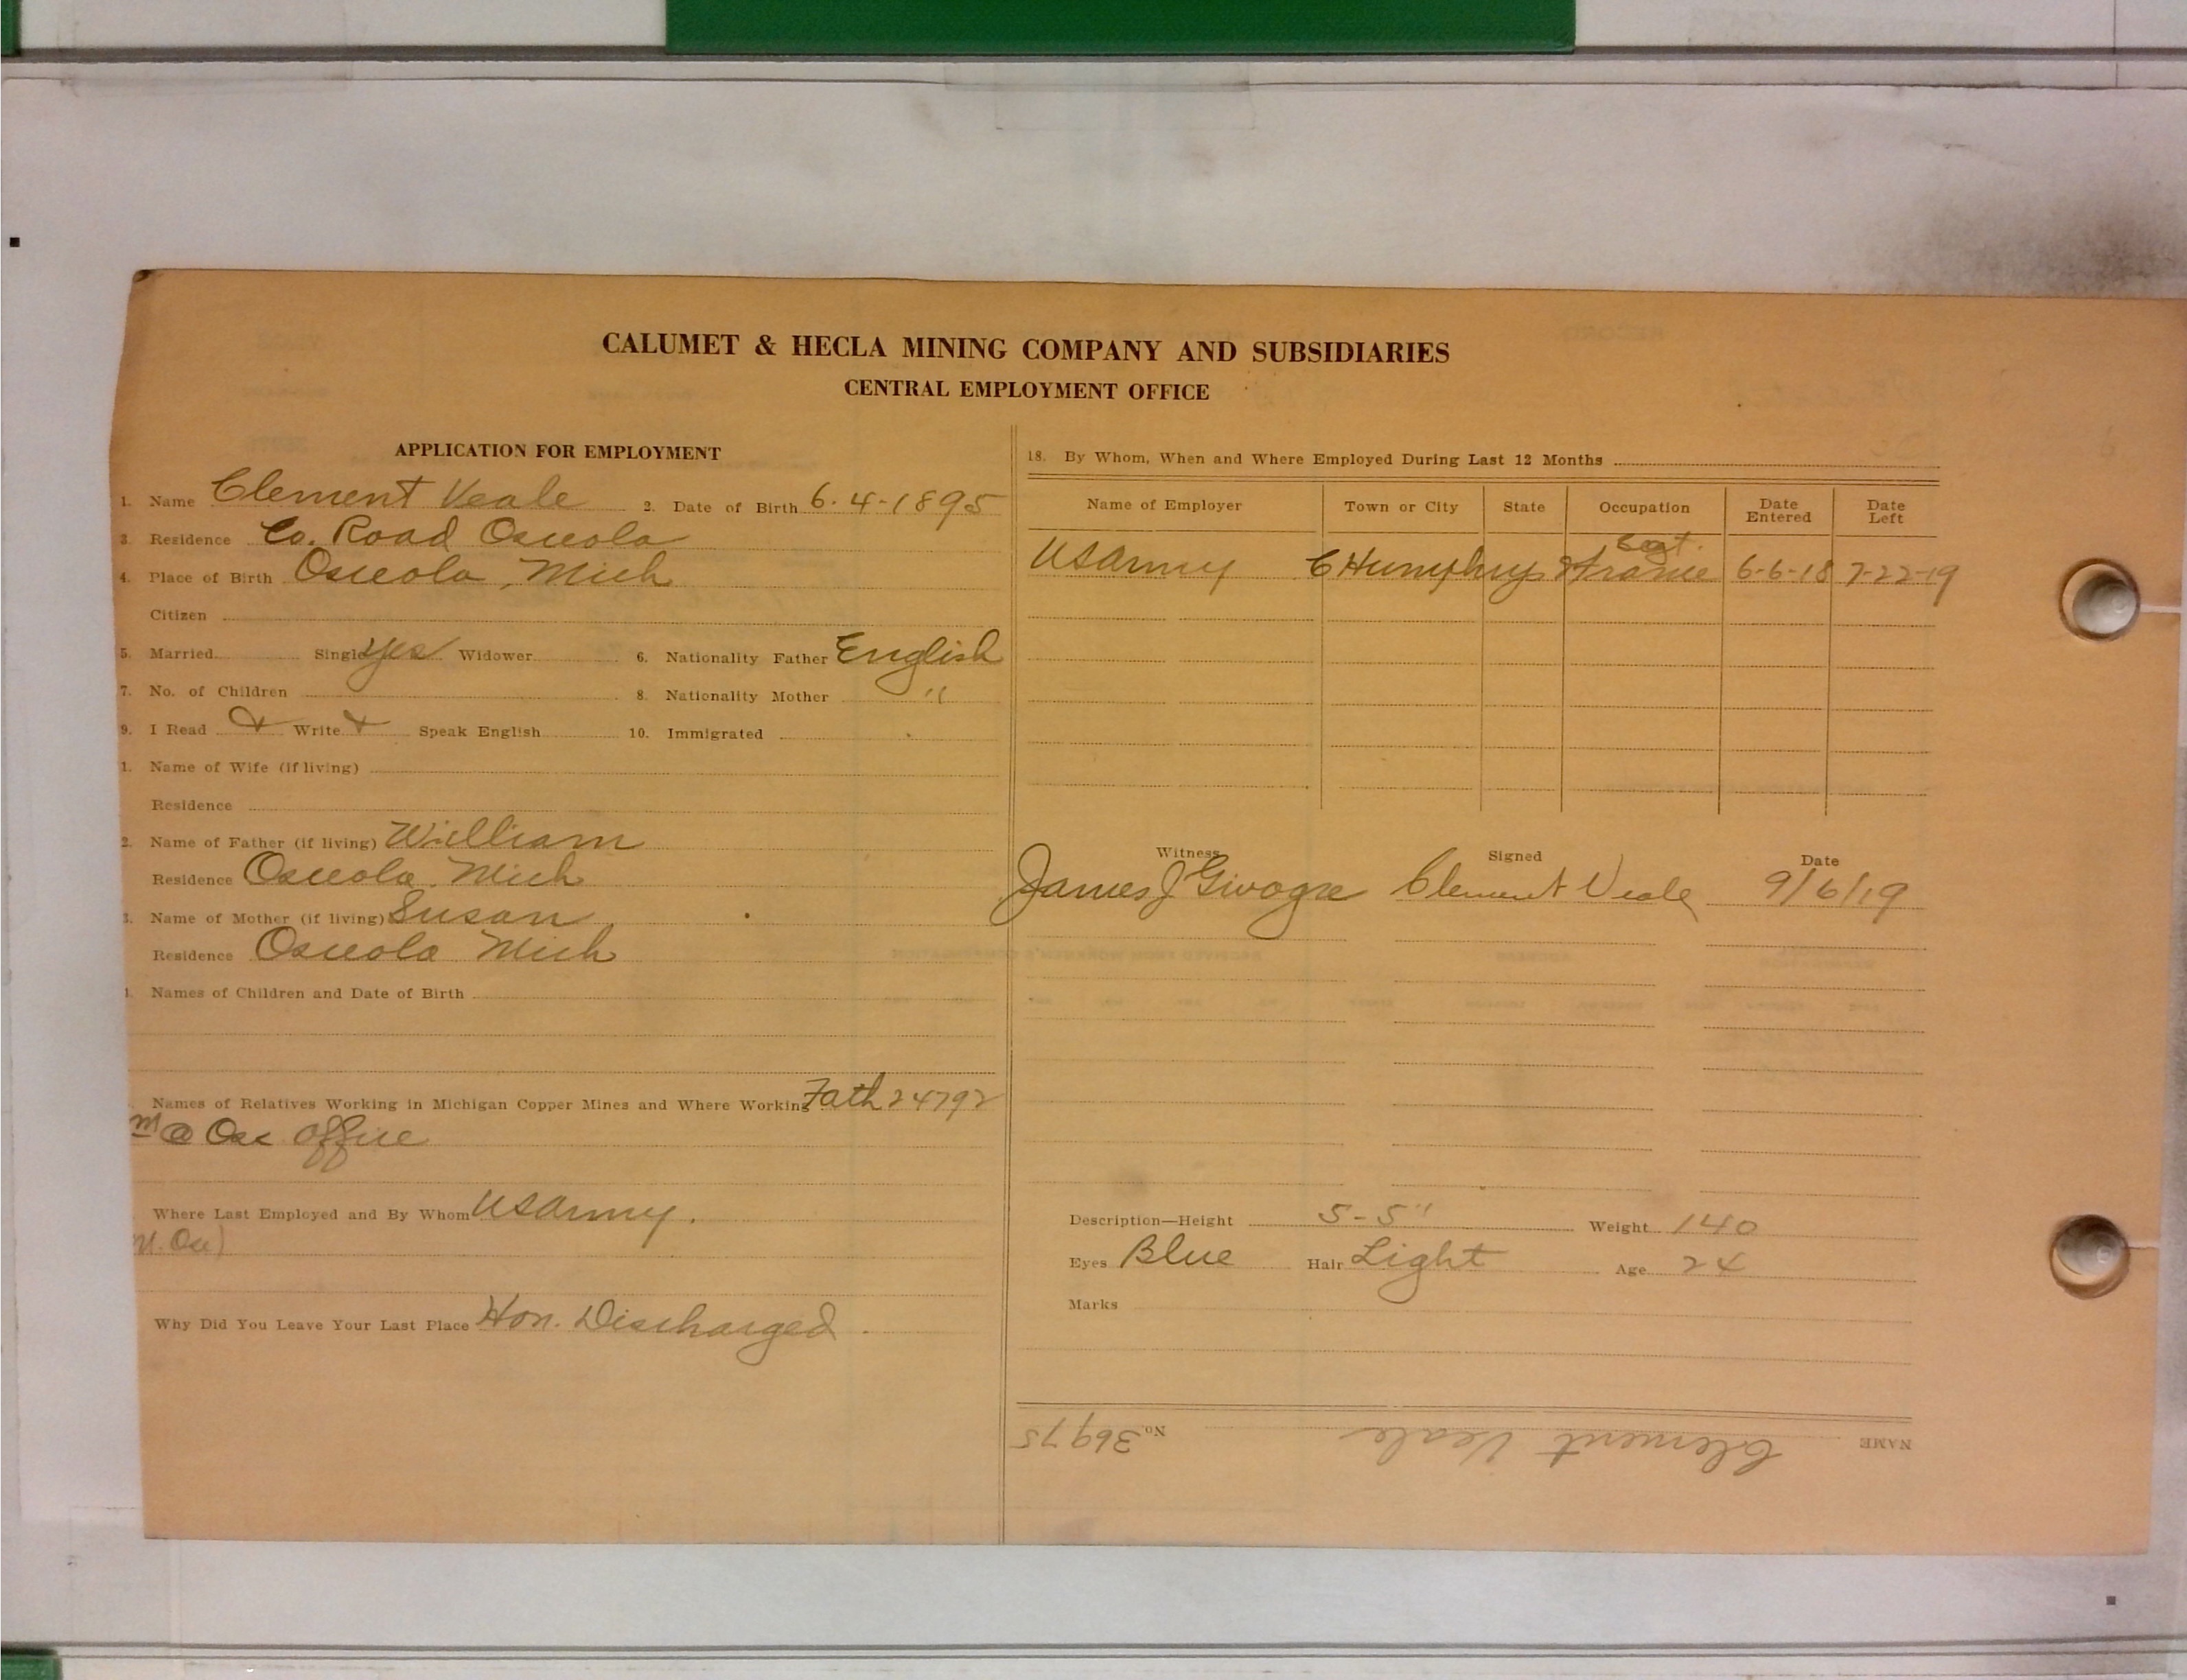 CALUMET & HECLA MINING COMPANY AND SUBSIDIARIES
CENTRAL EMPLOYMENT OFFICE
APPLICATION FOR EMPLOYMENT
1. Name Clement Veale 2. Date of Birth 6-4-1895
3. Residence Co. Road Osceola
4. Place of Birth Osceola, Mich
Citizen
5. Married Single yes Widower 6. Nationality Father English
7. No. of Children 8. Nationality Mother "
9. I Read Write Speak English 10. Immigrated
1. Name of Wife (if living)
Residence
2. Name of Father (if living) William
Residence Osceola. Mich
3. Name of Mother (if living) Susan
Residence Osceola Mich
Names of Children and Date of Birth
Names of Relatives Working in Michigan Copper Mines and Where Working Fath 24792
@ Osc office
Where Last Employed and By Whom US Army.
Why Did You Leave Your Last Place Hon. Discharged
18. By Whom, When and Where Employed During Last 12 Months
Name of Employer Town or City State Occupation Date Entered Date Left
Segt.
US Army C Humphrys & France 6-6-18 7-22-19
Witness Signed Date
James J Clement Veale 9/6/19
Description—Height 5-5" Weight 140
Eyes Blue Hair Light Age 24
Marks
NAME Clement Veale No. 36975